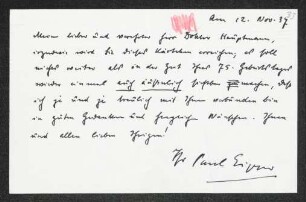 Am 12. Nov. 37.
Mein lieber und verehrter Herr Doktor Hauptmann,
irgendwie wird Sie dieses Kärtchen erreichen, es soll
nichts weiter als in der Zeit Ihres 75. Geburtstages
wieder einmal auch äusserlich sichtbar machen, daß
ich je und je treulich mit Ihnen verbunden bin
in guten Gedanken und herzlichen Wünschen. Ihnen
und allen lieben Ihrigen!
Ihr Paul Eipper